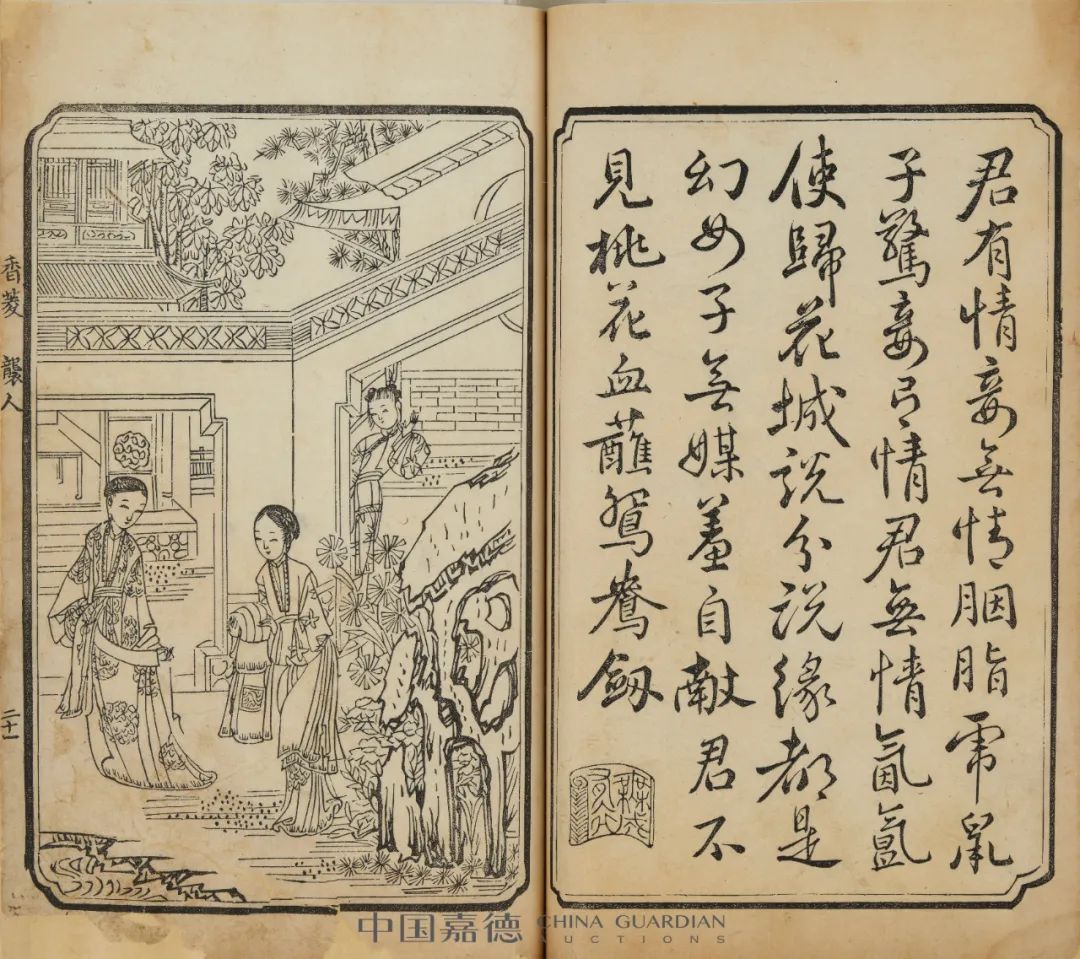 君有情妾無情胭脂虎鼠
子驚妾有情君無情氤氳
使歸花城說分說緣都是
幻女子無媒羞自献君不
見桃花血蘸鴛鴦劔
香菱 襲人
二十一
中国嘉德 CHINA GUARDIAN
AUCTIONS